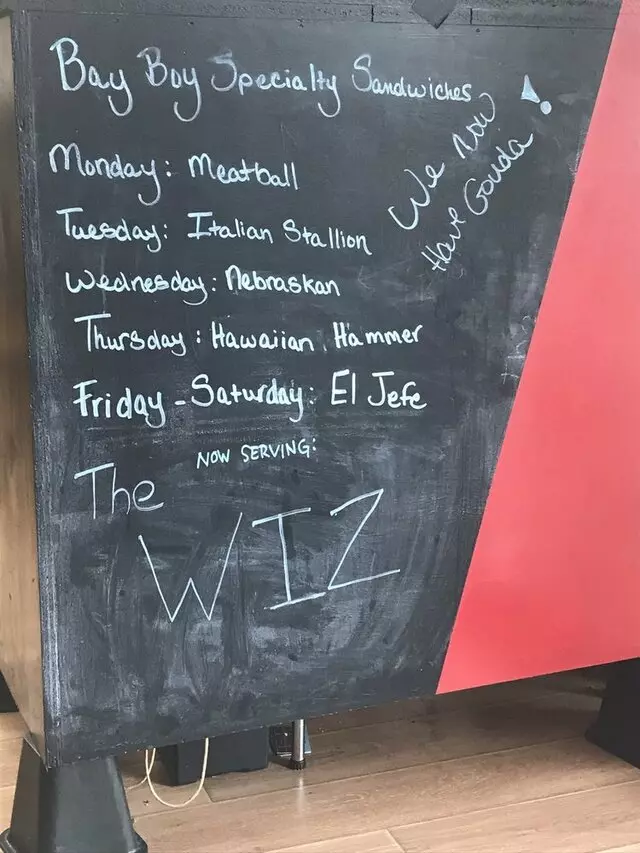 Bay Boy Specialty Sandwiches
We now
Have Gouda!
Monday: Meatball
Tuesday: Italian Stallion
Wednesday: Nebraskan
Thursday: Hawaiian Hammer
Friday-Saturday: El Jefe
NOW SERVING:
The
WIZ